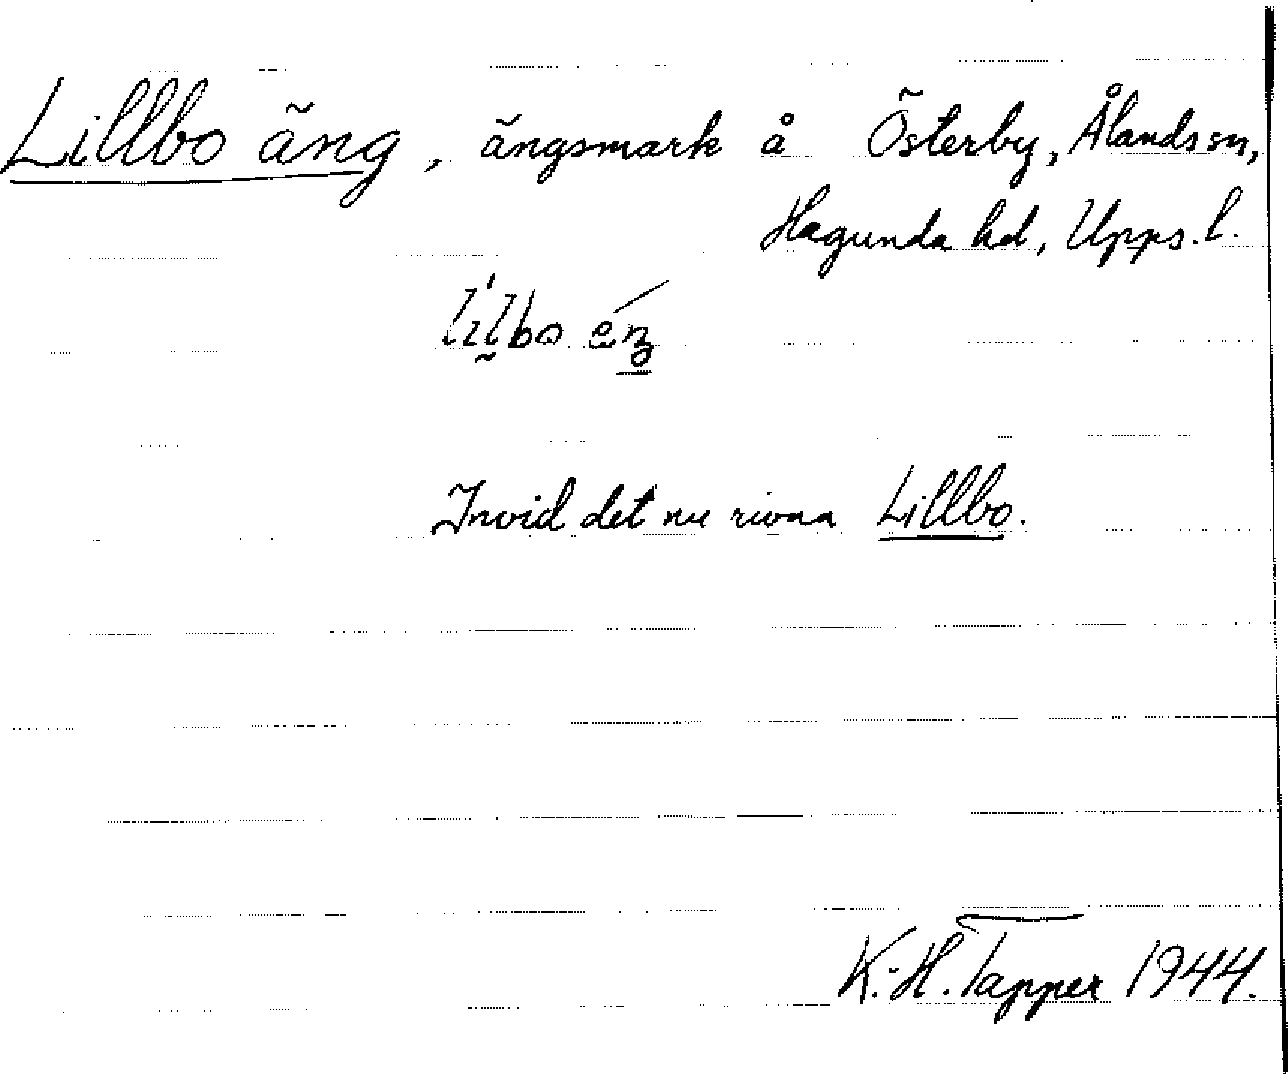 Lillbo äng, ängsmark å Österby, Ålands sn,
Hagunda hd, Upps. l.
Invid det nu rivna Lillbo.
K.-H. Tapper 1944.